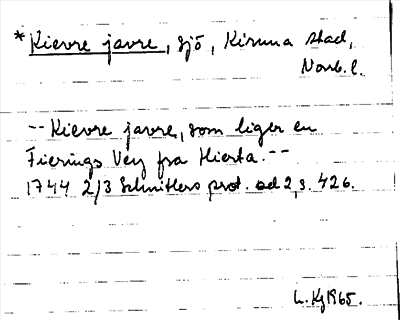 * Kievre javre, sjö, Kiruna stad,
Norrb. l.
-- Kievre javre, som liger en
Fierings Vey fra Hierta. --
1744 2/3 Schnitlers prot. bd 2, s. 426.
L. Kj 1965.